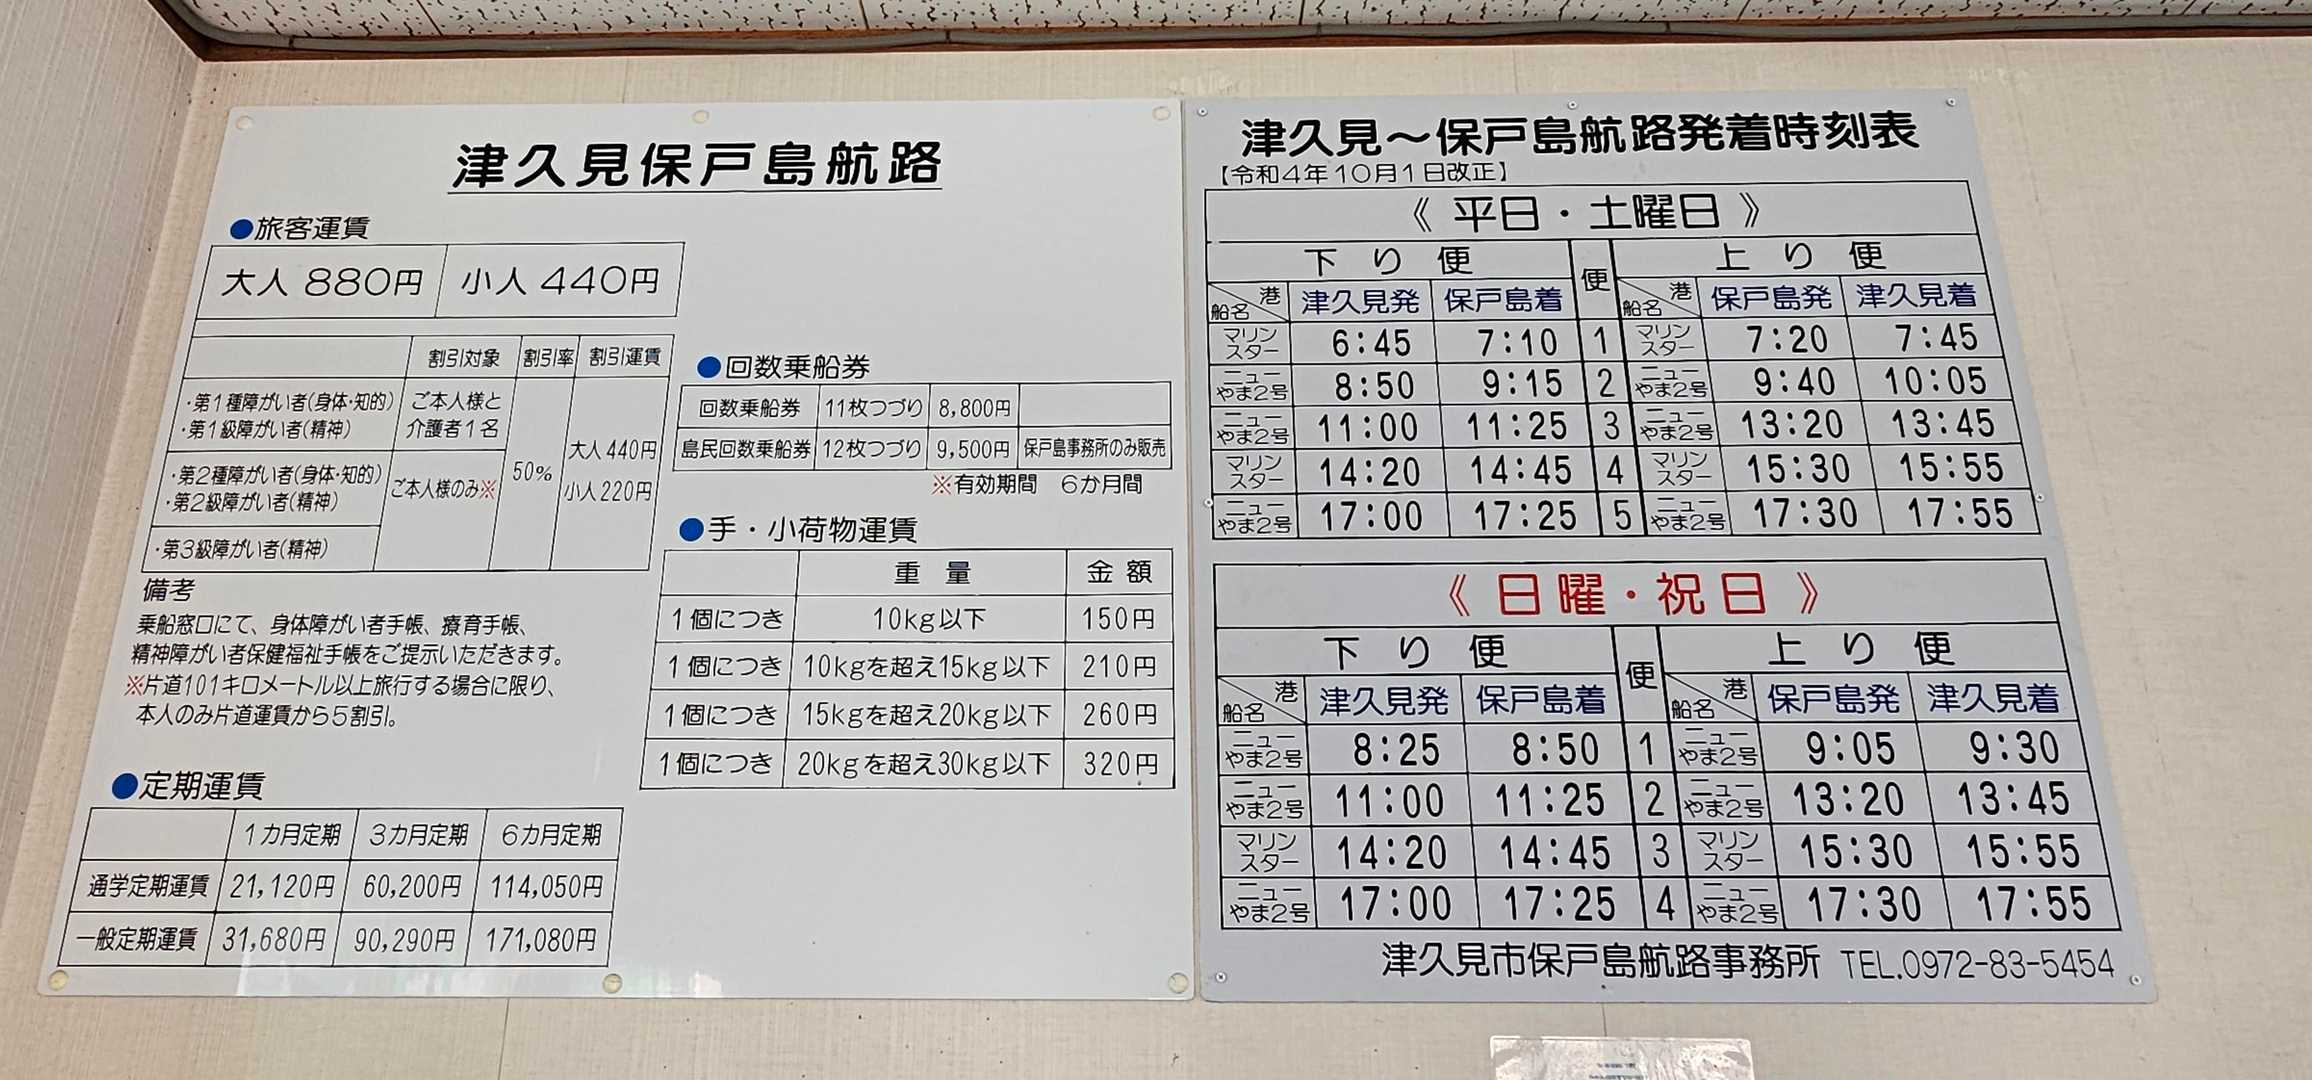 津久見保戸島航路
●旅客運賃
大人 880円 小人 440円
割引対象 割引率 割引運賃
・第1種障がい者(身体・知的)
・第1級障がい者(精神)
ご本人様と
介護者1名
・第2種障がい者(身体・知的)
・第2級障がい者(精神)
ご本人様のみ※
・第3級障がい者(精神)
50%
大人440円
小人220円
備考
乗船窓口にて、身体障がい者手帳、療育手帳、
精神障がい者保健福祉手帳をご提示いただきます。
※片道101キロメートル以上旅行する場合に限り、
本人のみ片道運賃から5割引。
●定期運賃
1カ月定期 3カ月定期 6カ月定期
通学定期運賃 21,120円 60,200円 114,050円
一般定期運賃 31,680円 90,290円 171,080円
●回数乗船券
回数乗船券 11枚つづり 8,800円
島民回数乗船券 12枚つづり 9,500円 保戸島事務所のみ販売
※有効期間 6か月間
●手・小荷物運賃
重量 金額
1個につき 10kg以下 150円
1個につき 10kgを超え15kg以下 210円
1個につき 15kgを超え20kg以下 260円
1個につき 20kgを超え30kg以下 320円
津久見～保戸島航路発着時刻表
【令和4年10月1日改正】
《 平日・土曜日 》
下り便 便 上り便
港 船名 津久見発 保戸島着 港 船名 保戸島発 津久見着
マリンスター 6:45 7:10 1 マリンスター 7:20 7:45
ニューやま2号 8:50 9:15 2 ニューやま2号 9:40 10:05
ニューやま2号 11:00 11:25 3 ニューやま2号 13:20 13:45
マリンスター 14:20 14:45 4 マリンスター 15:30 15:55
ニューやま2号 17:00 17:25 5 ニューやま2号 17:30 17:55
《 日曜・祝日 》
下り便 便 上り便
港 船名 津久見発 保戸島着 港 船名 保戸島発 津久見着
ニューやま2号 8:25 8:50 1 ニューやま2号 9:05 9:30
ニューやま2号 11:00 11:25 2 ニューやま2号 13:20 13:45
マリンスター 14:20 14:45 3 マリンスター 15:30 15:55
ニューやま2号 17:00 17:25 4 ニューやま2号 17:30 17:55
津久見市保戸島航路事務所 TEL.0972-83-5454